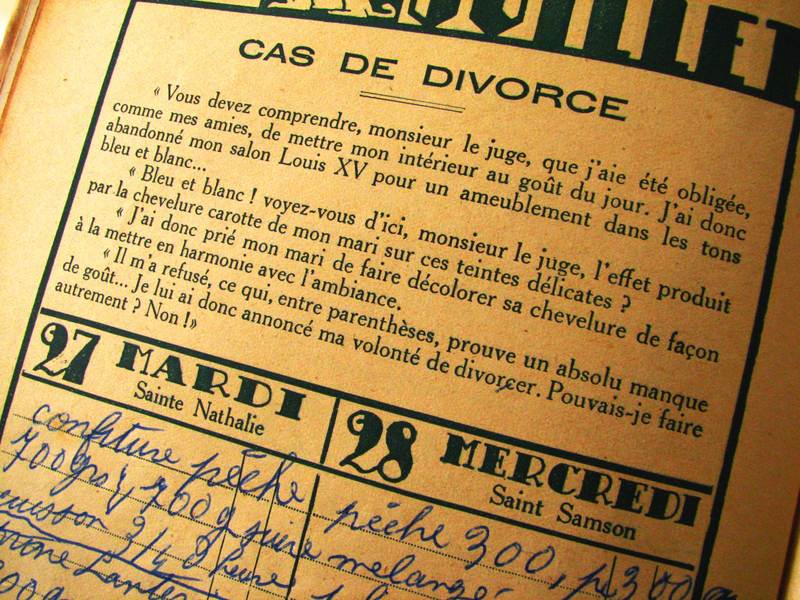 CAS DE DIVORCE
« Vous devez comprendre, monsieur le juge, que j'aie été obligée,
comme mes amies, de mettre mon intérieur au goût du jour. J'ai donc
abandonné mon salon Louis XV pour un ameublement dans les tons
bleu et blanc...
« Bleu et blanc ! voyez-vous d'ici, monsieur le juge, l'effet produit
par la chevelure carotte de mon mari sur ces teintes délicates ?
« J'ai donc prié mon mari de faire décolorer sa chevelure de façon
à la mettre en harmonie avec l'ambiance.
« Il m'a refusé, ce qui, entre parenthèses, prouve un absolu manque
de goût... Je lui ai donc annoncé ma volonté de divorcer. Pouvais-je faire
autrement ? Non !»
27 MARDI
Sainte Nathalie
28 MERCREDI
Saint Samson
confiture pêche pêche 300,
700 g
3/4 d heure